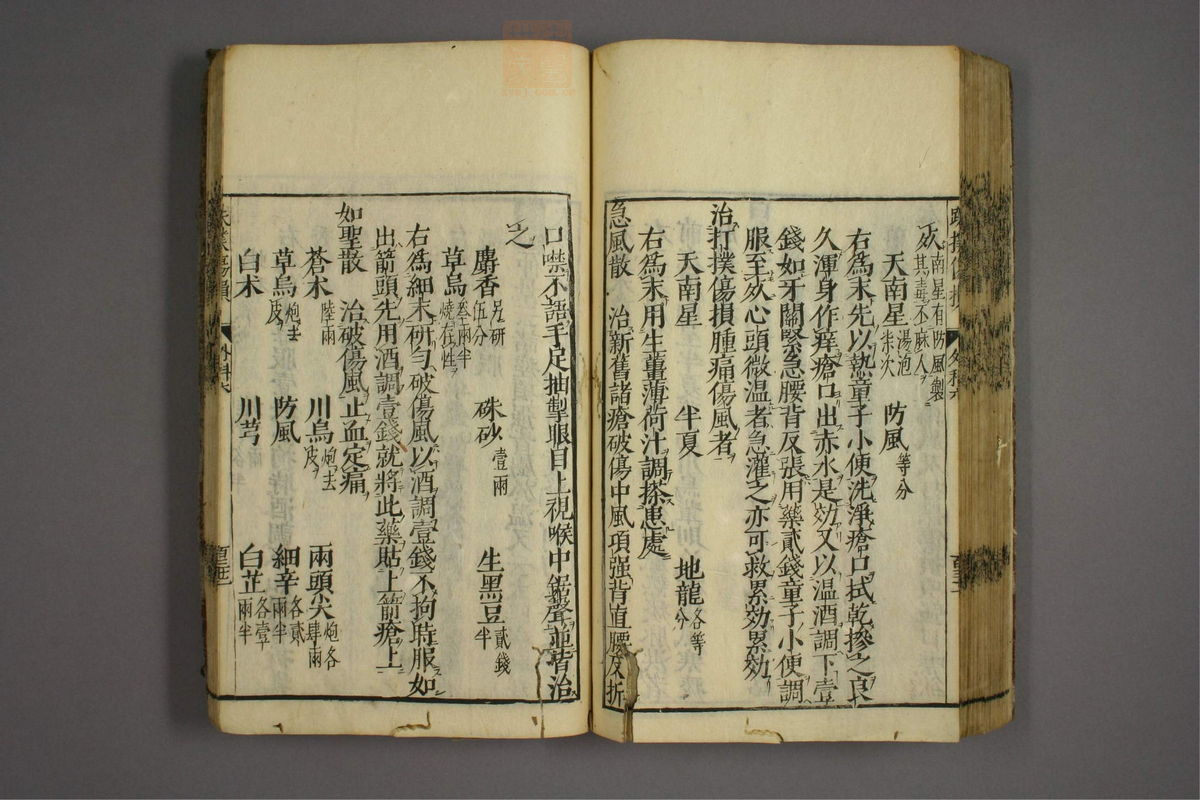 灰南星有防風製
其毒不麻人
天南星湯泡柒次　防風等分
右爲末先以熱童子小便洗淨瘡口拭乾摻之良
久渾身作痒瘡口出赤水是効又以温酒調下壹
錢如牙關緊急腰背反張用藥貳錢童子小便調
服至死心頭微温者急灌之亦可救累効累効
治打撲傷損腫痛傷風者
天南星　半夏　地龍各等分
右爲末用生薑薄荷汁調搽患處
急風散　治新舊諸瘡破傷中風項强背直腰反折
口噤不語手足抽掣眼目上視喉中鋸聲並皆治
之
麝香另研伍分　硃砂壹兩　生黑豆貳錢半
草烏叁兩半燒存性
右爲細末研勻破傷風以酒調壹錢不拘時服如
出箭頭先用酒調壹錢就將此藥貼上箭瘡上
如聖散　治破傷風止血定痛
蒼朮陸兩　川烏炮去皮　兩頭尖炮各肆兩
草烏炮去皮　防風　細辛各貳兩半
白朮　川芎　白芷各壹兩半